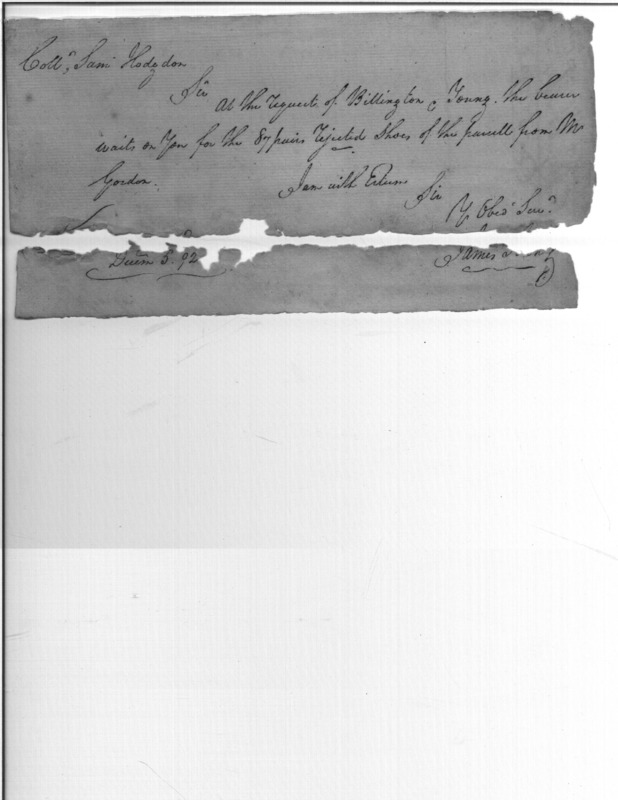 Coll.º Sam Hodgdon
Sir
At the request of Billington & Young. the bearer
waits on You for the 87 pairs rejected Shoes of the parcell from Mr
Gordon.
I am with Esteem
Sir
Y Obed Ser.
Decem 5. 92
James